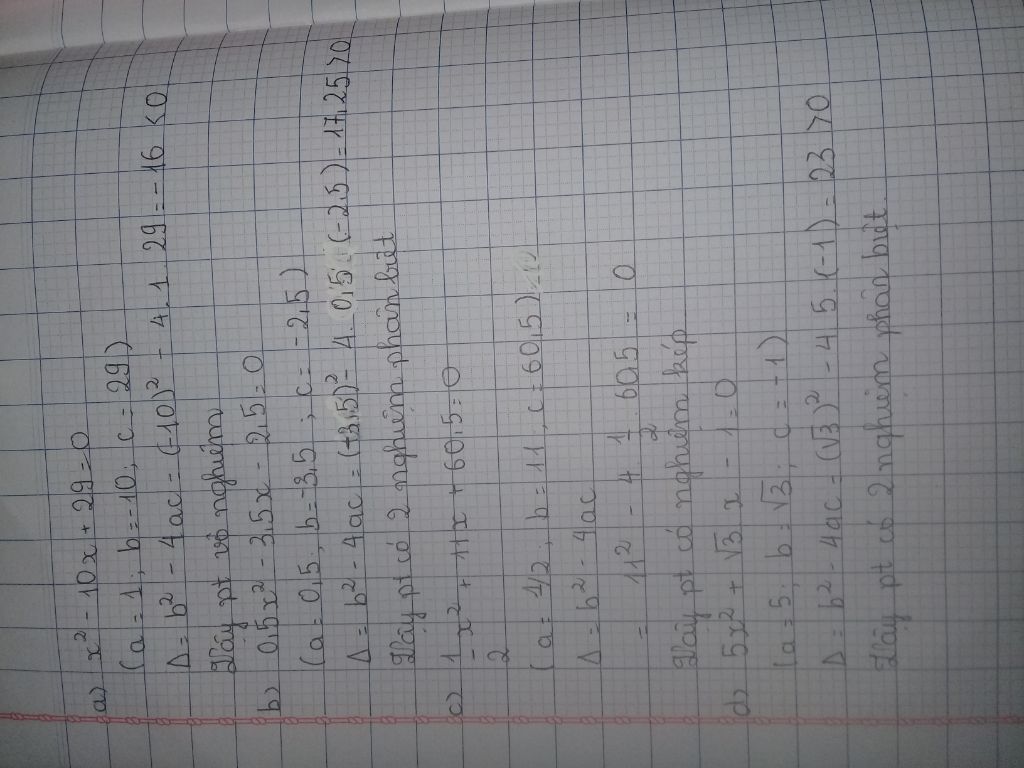 a) x² - 10x + 29 = 0
(a = 1; b = -10; c = 29)
Δ = b² - 4ac = (-10)² - 4.1.29 = -16 < 0
Vậy pt vô nghiệm
b) 0,5x² - 3,5x - 2,5 = 0
(a = 0,5; b = -3,5; c = -2,5)
Δ = b² - 4ac = (-3,5)² - 4.0,5(-2,5) = 17,25 > 0
Vậy pt có 2 nghiệm phân biệt
c) 1/2 x² + 11x + 60,5 = 0
(a = 1/2; b = 11; c = 60,5)
Δ = b² - 4ac
= 11² - 4 1/2 . 60,5 = 0
Vậy pt có nghiệm kép
d) 5x² + √3 x - 1 = 0
(a = 5; b = √3; c = -1)
Δ = b² - 4ac = (√3)² - 4.5.(-1) = 23 > 0
Vậy pt có 2 nghiệm phân biệt